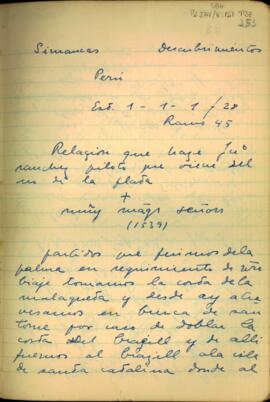 253
Simancas Descubrimientos
Perú
Est. 1-1-1/28
Ramo 45
Relacion que haze Juº
sanchez piloto que viene del
rio de la plata
+
muy mags señors
(1539)
partidos que fuimos dela
palma en seguimiento de
viaje tomamos la costa de la
malagueta y desde ay atra
vesamos en busca de san
tome por caso de doblar la
costa del brazill y de alli
fuemos al brazill a la isla
de santa catalina donde al